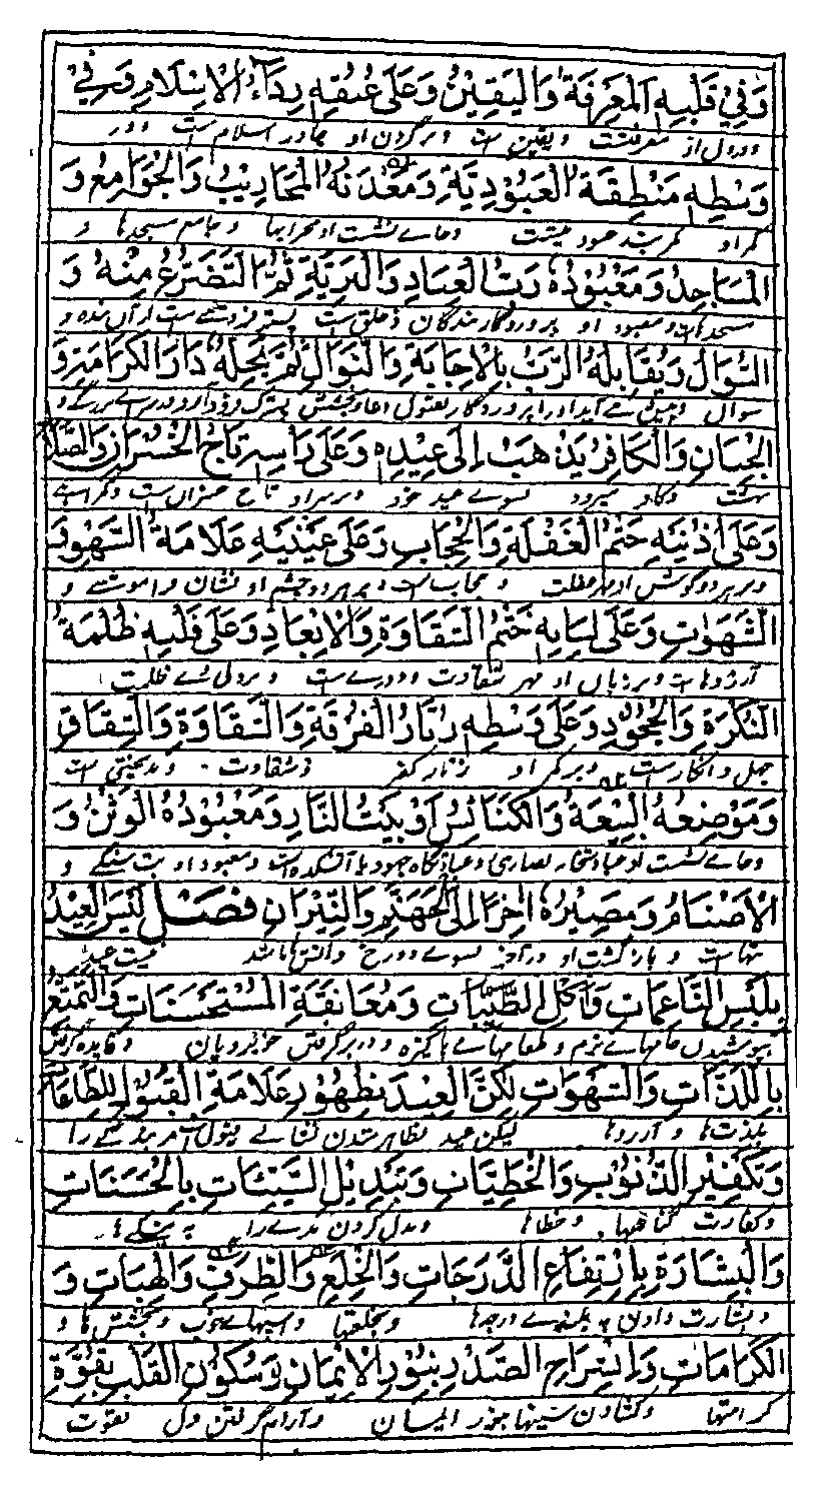 وَفِيْ قَلْبِهِ الْمَعْرِفَةُ وَالْيَقِيْنُ وَعَلَى عُنُقِهِ رِدَاءُ الْاِسْلَامِ وَفِيْ
ودر دل از معرفتست ویقین ست وبر گردن او چادر اسلام ست ودر
وَسْطِهِ مَنْطِقَةُ الْعُبُوْدِيَّةِ وَمَعْدَنُهُ الْمَحَارِيْبُ وَالْجَوَامِعُ وَ
کمر او کمربند عبودیتست وجاے نشست او محرابها وجامع مسجدها و
الْمَسَاجِدُ وَمَعْبُوْدُهُ رَبُّ الْعِبَادِ وَالْبَرِيَّةِ ثُمَّ التَّضَرُّعُ مِنْهُ وَ
مسجدهاست ومعبود او پروردگار بندگان وخلق ست پستر فروتنے ست ازان بنده و
السُّوَالُ وَيُقَابِلُهُ الرَّبُّ بِالْاِجَابَةِ وَالنَّوَالِ ثُمَّ يُحِلُّهُ دَارَ الْكَرَامَةِ وَ
سوال وپیش مے آید او را پروردگار بقبول دعا وبخشش پسترک
الْجِنَانِ وَالْكَافِرُ يَذْهَبُ اِلَى عِيْدِهِ وَعَلَى رَاْسِهِ تَاجُ الْخُسْرَانِ وَالضَّلَالِ
بهشت وکافر میرود بسوے عید خود وبر سر او تاج خسران ست وگمراهے
وَعَلَى اُذُنَيْهِ خَتْمُ الْغَفْلَةِ وَالْحِجَابِ وَعَلَى عَيْنَيْهِ عَلَامَةُ السَّهْوِ وَ
وبر هر دو گوش او مهر غفلت وحجاب ست وبر هر دو چشم او نشان فراموشے و
الشَّهَوٰتِ وَعَلَى لِسَانِهِ خَتْمُ الشَّقَاوَةِ وَالْاِبْعَادِ وَعَلَى قَلْبِهِ ظُلْمَةُ
آرزوهاست وبر زبان او مهر شقاوت ودورے ست وبر دل وے ظلمت
النُّكْرَةِ وَالْجُحُوْدِ وَعَلَى وَسْطِهِ زُنَّارُ الْفُرْقَةِ وَالشَّقَاوَةِ وَالشِّقَاقِ
جهل وانکارست وبر کمر او زنار کفر وشقاوت وبدبختی ست
وَمَوْضِعُهُ الْبِيْعَةُ وَالْكَنَائِسُ اَوْ بَيْتُ النَّارِ وَمَعْبُوْدُهُ الْوَثَنُ وَ
وجاے نشست او عبادتخانه نصاری وعبادتگاه یهود یا آتشکده است ومعبود او بت سنگے و
الْاَصْنَامُ وَمَصِيْرُهُ اٰخِرًا اِلَى جَهَنَّمِ وَالنِّيْرَانِ فَصْلٌ لَيْسَ الْعِيْدُ
بتهاست وبازگشت او در آخر بسوے دوزخ وآتش باشد نیست عید
بِلُبْسِ النَّاعِمَاتِ وَاَكْلِ الطَّيِّبَاتِ وَمُعَانَقَةِ الْمُسْتَحْسَنَاتِ وَالتَّمَتُّعِ
بپوشیدن جامهاے نرم وطعامهاے پاکیزه ودر بر گرفتن خوبرویان وفائده گرفتن
بِاللَّذَّاتِ وَالشَّهَوَاتِ لٰكِنَّ الْعِيْدَ بِظُهُوْرِ عَلَامَةِ الْقَبُوْلِ لِلطَّاعَاتِ
بلذتها وآرزوها لیکن عید بظاهر شدن نشانے قبول ست مر بندگے را
وَتَكْفِيْرِ الذُّنُوْبِ وَالْخَطِيَّاتِ وَتَبْدِيْلِ السَّيِّئَاتِ بِالْحَسَنَاتِ
وکفارت گناهها وخطاها وبدل کردن بدے را به نیکے ها
وَالْبِشَارَةِ بِارْتِفَاعِ الدَّرَجَاتِ وَالْخِلَعِ وَالطُّرَفِ وَالْهِبَاتِ وَ
وبشارت دادن به بلندے درجها وبخلعتها واسپهاے خوب وبخششها و
الْكَرَامَاتِ وَانْشِرَاحِ الصَّدْرِ بِنُوْرِ الْاِيْمَانِ وَسُكُوْنِ الْقَلْبِ بِقُوَّةِ
کرامتها وکشادن سینها بنور ایمان وآرام گرفتن دل بقوت